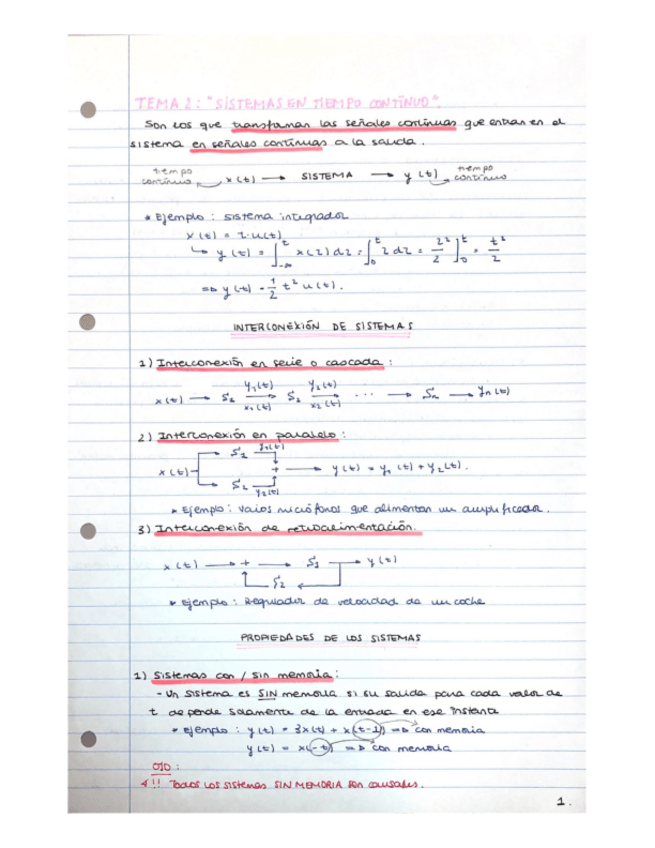 TEMA 2: "SISTEMAS EN TIEMPO CONTÍNUO".
Son los que transforman las señales contínuas que entran en el
sistema en señales contínuas a la salida.
tiempo contínuo x(t) → SISTEMA → y(t) tiempo contínuo
* Ejemplo: sistema integrador
x(t) = t·u(t)
↳ y(t) = ∫_{-∞}^{t} x(z)dz = ∫_0^t z dz = z²/2 ]_0^t = t²/2
⇒ y(t) = 1/2 t² u(t).
INTERCONEXIÓN DE SISTEMAS
1) Interconexión en serie o cascada:
y₁(t) y₂(t)
x(t) → S₁ → S₂ → ... → Sₙ → yₙ(t)
x₁(t) x₂(t)
2) Interconexión en paralelo:
S₁ y₁(t)
x(t) + → y(t) = y₁(t) + y₂(t).
S₂ y₂(t)
* Ejemplo: varios micrófonos que alimentan un amplificador.
3) Interconexión de retroalimentación.
x(t) → + → S₁ → y(t)
S₂
* Ejemplo: Regulador de velocidad de un coche
PROPIEDADES DE LOS SISTEMAS
1) Sistemas con / sin memoria:
- Un sistema es SIN memoria si su salida para cada valor de
t depende solamente de la entrada en ese instante
* ejemplo: y(t) = 3x(t) + x(t-1) ⇒ con memoria
y(t) = x(-t) ⇒ con memoria
OJO:
!! Todos los sistemas SIN MEMORIA son causales.
1.